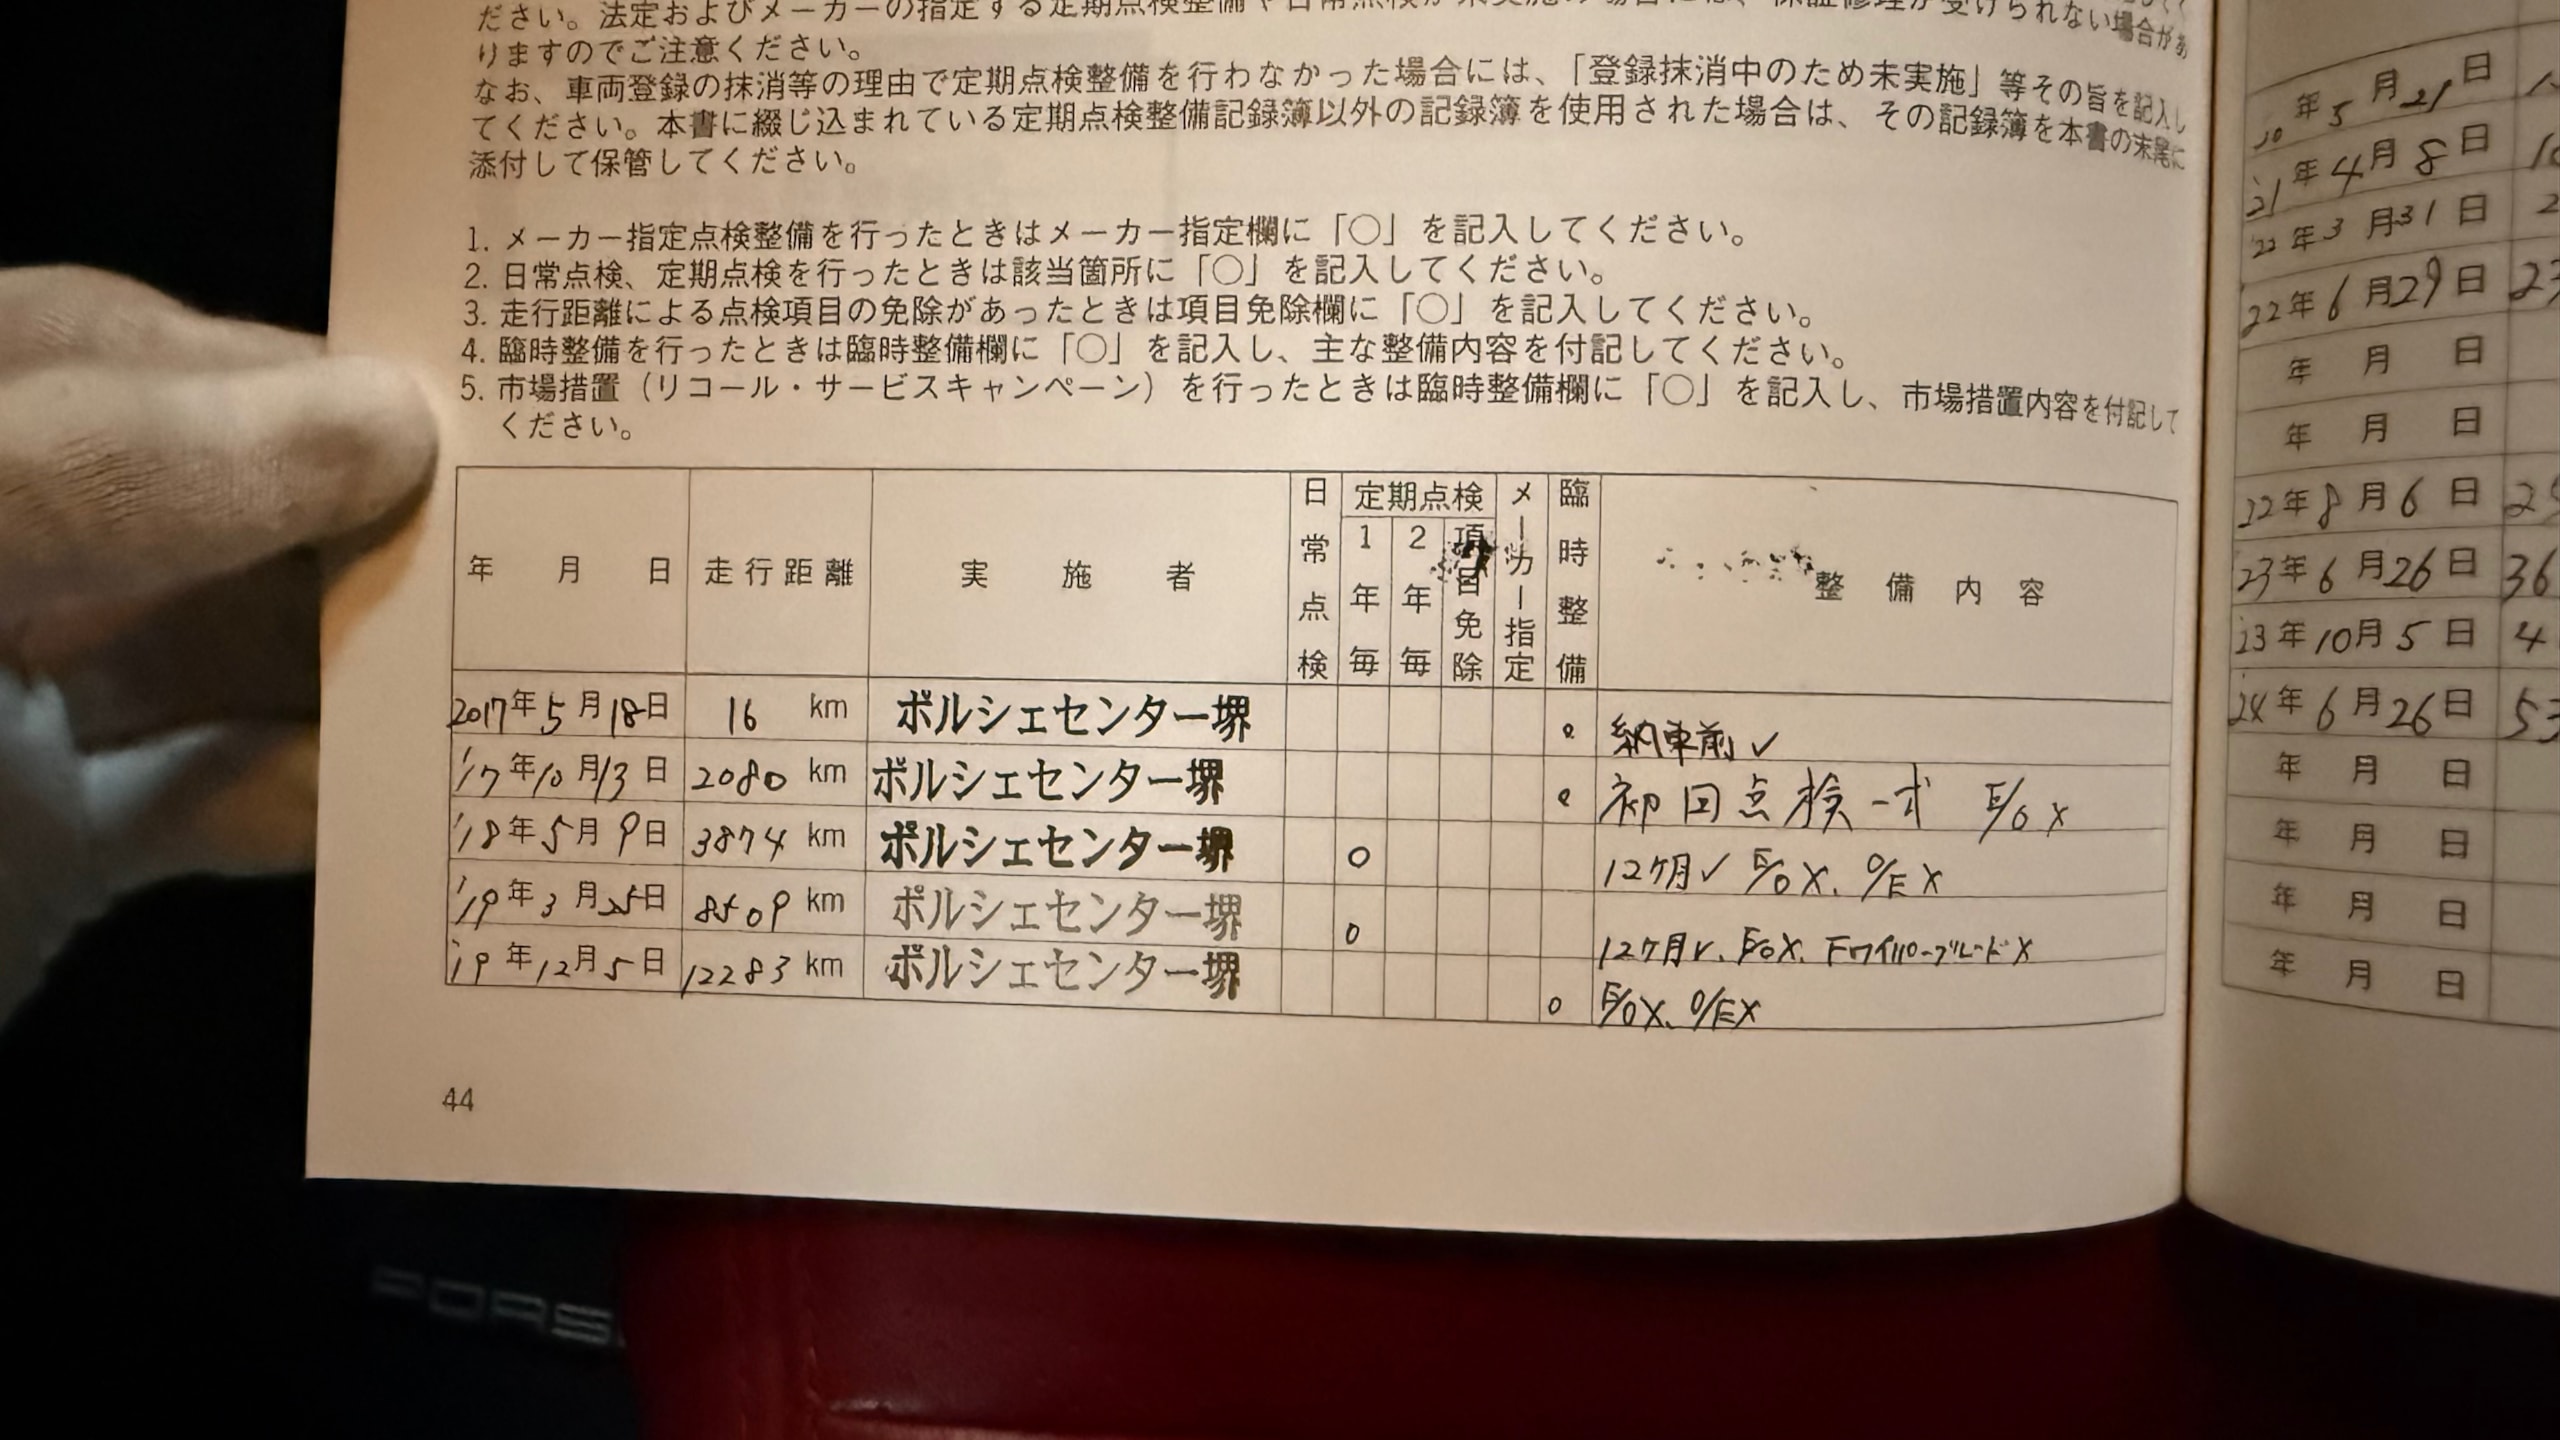 ださい。法定およびメーカーの指定する定期点検整備や日常点検が未実施の場合には、保証修理が受けられない場合があ
りますのでご注意ください。
なお、車両登録の抹消等の理由で定期点検整備を行わなかった場合には、「登録抹消中のため未実施」等その旨を記入し
てください。本書に綴じ込まれている定期点検整備記録簿以外の記録簿を使用された場合は、その記録簿を本書の末尾に
添付して保管してください。
1. メーカー指定点検整備を行ったときはメーカー指定欄に「○」を記入してください。
2. 日常点検、定期点検を行ったときは該当箇所に「○」を記入してください。
3. 走行距離による点検項目の免除があったときは項目免除欄に「○」を記入してください。
4. 臨時整備を行ったときは臨時整備欄に「○」を記入し、主な整備内容を付記してください。
5. 市場措置（リコール・サービスキャンペーン）を行ったときは臨時整備欄に「○」を記入し、市場措置内容を付記して
ください。
年 月 日 走行距離 実施者 日常点検 定期点検 1年毎 2年毎 項目免除 メーカー指定 臨時整備 整備内容
2017年5月18日 16 km ポルシェセンター堺 ○ 納車前✓
'17年10月13日 2080 km ポルシェセンター堺 ○ 初回点検一式 E/O X
'18年5月9日 3874 km ポルシェセンター堺 ○ 12ヶ月✓ E/O X、O/E X
'19年3月25日 8509 km ポルシェセンター堺 ○ 12ヶ月✓、E/O X、Fワイパーブレード X
'19年12月5日 12283 km ポルシェセンター堺 ○ E/O X、O/E X
44
年5月21日
'21年4月8日
'22年3月31日
'22年6月29日 23
年 月 日
年 月 日
'22年8月6日
'23年6月26日 36
'23年10月5日 4
'24年6月26日 53
年 月 日
年 月 日
年 月 日
年 月 日
PORS